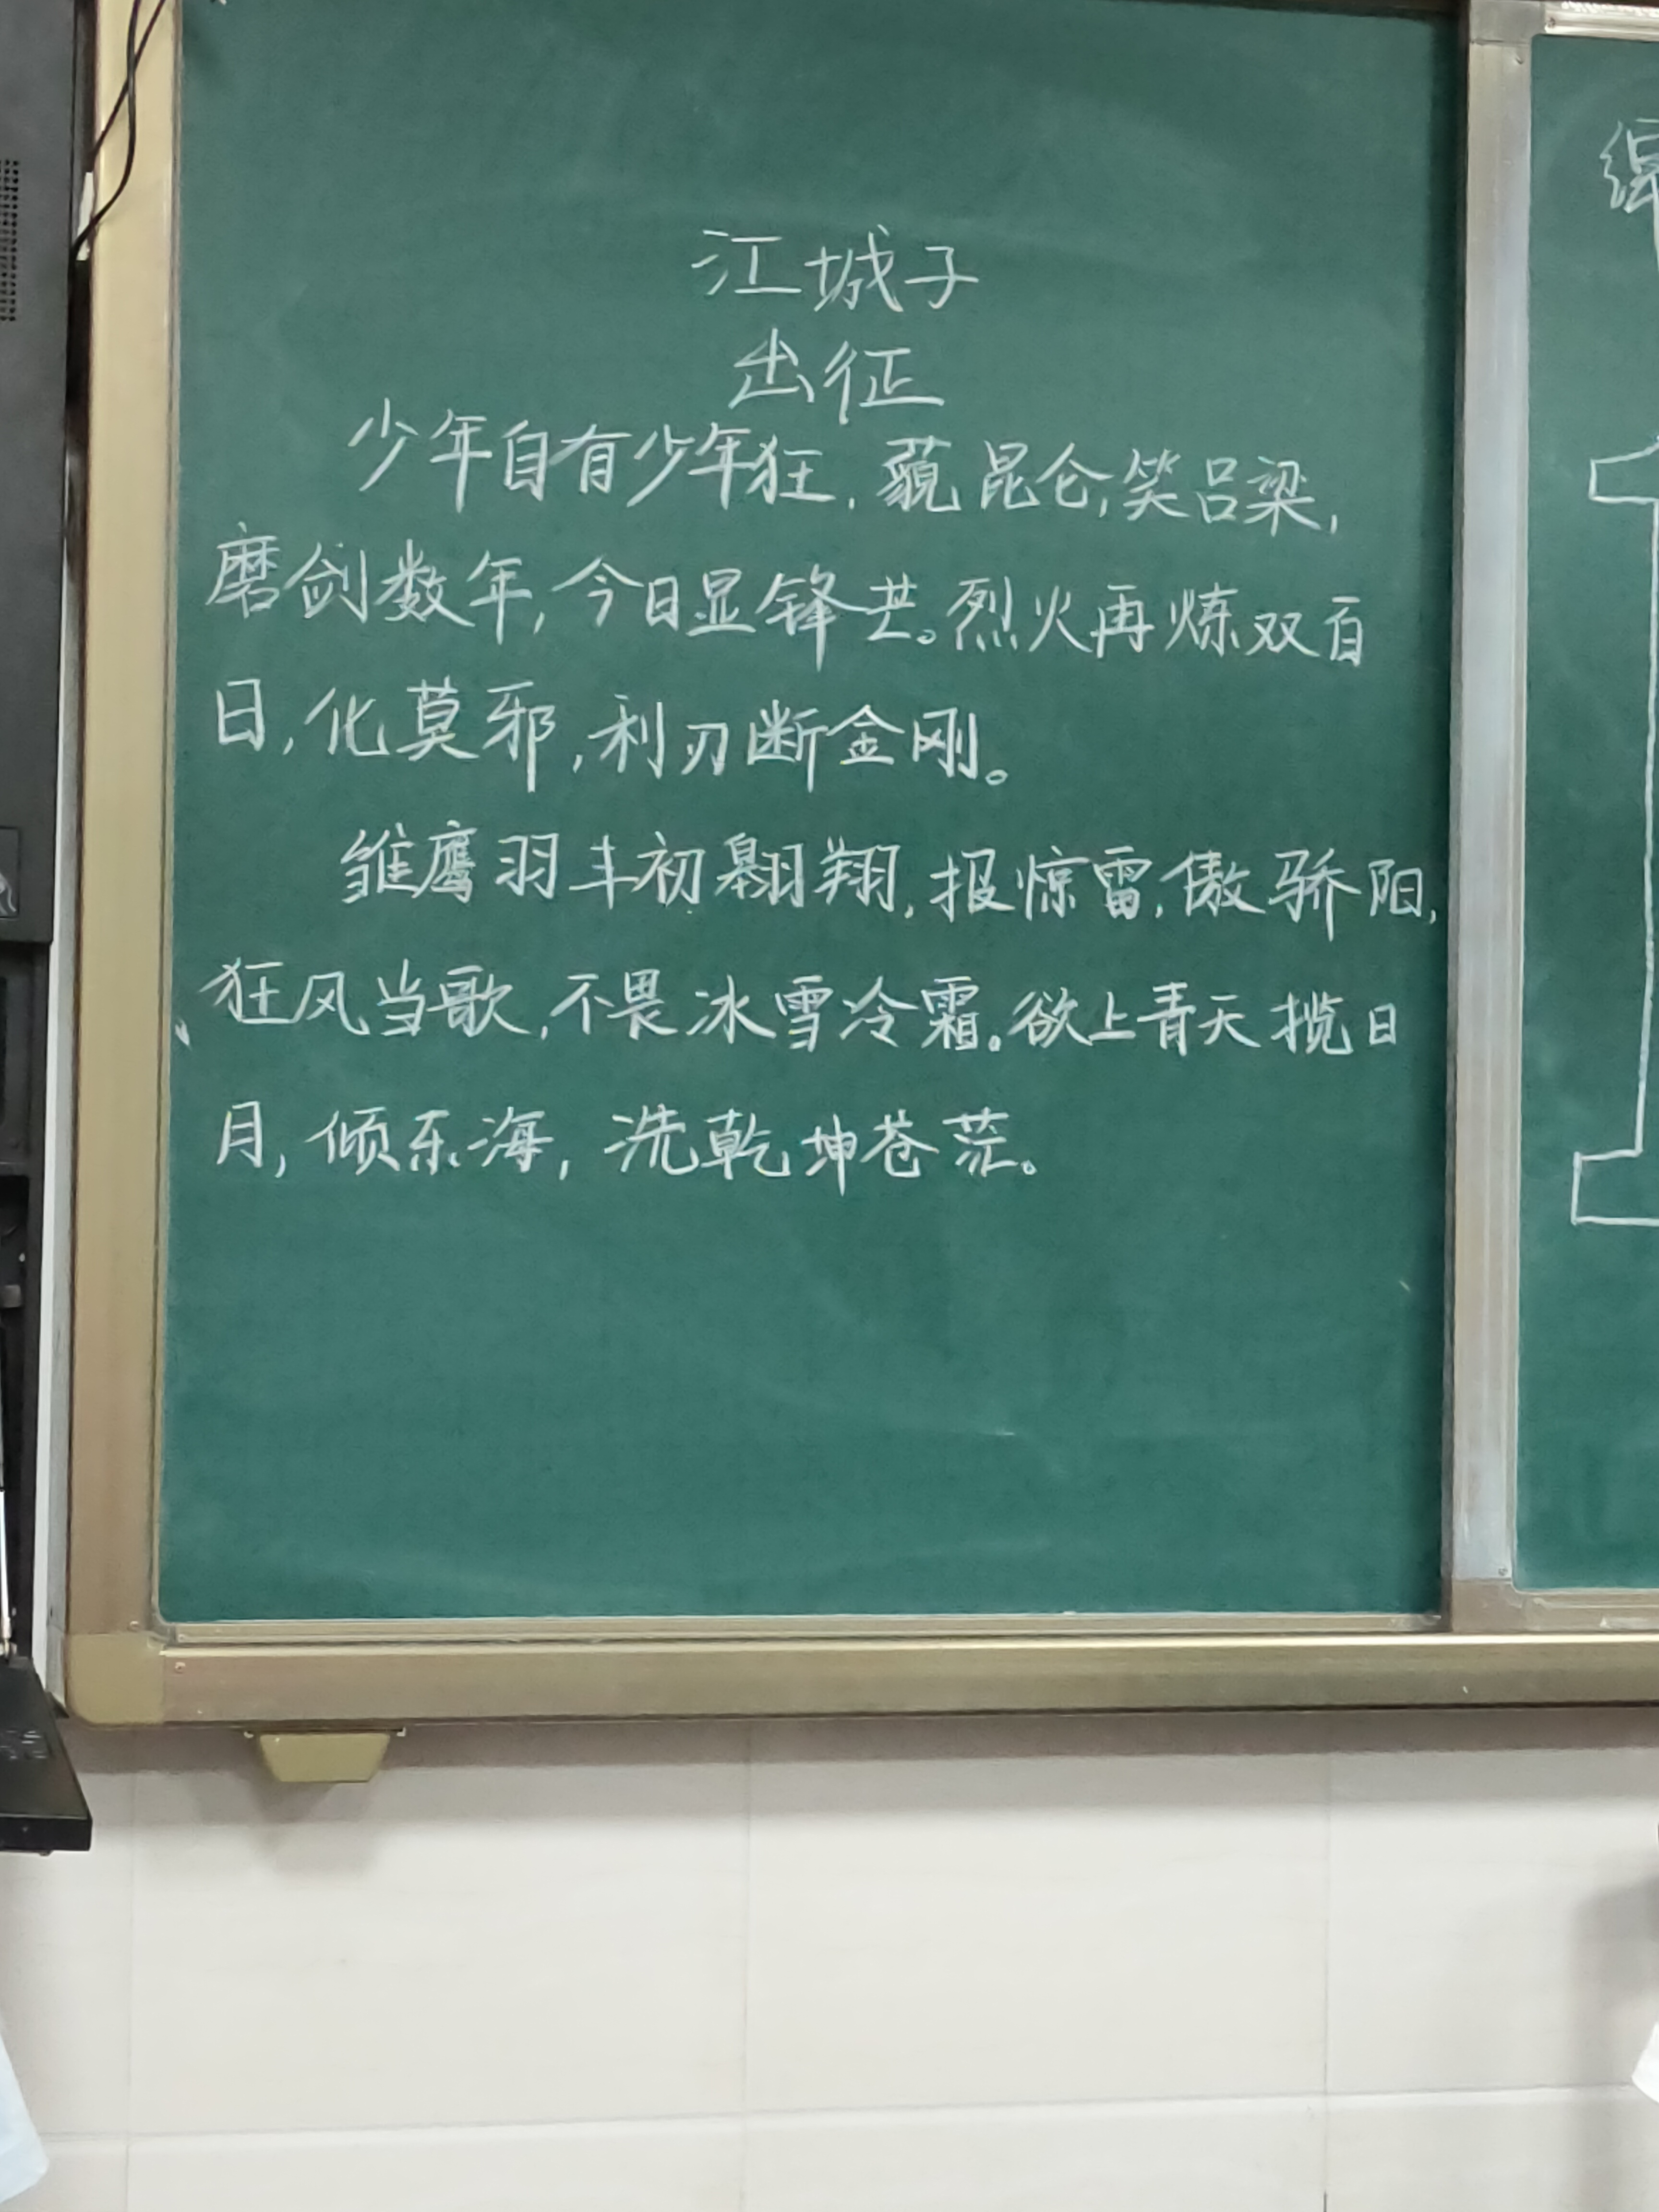 江城子
出征
少年自有少年狂,藐昆仑,笑吕梁,
磨剑数年,今日显锋芒。烈火再炼双百
日,化莫邪,利刃断金刚。
雏鹰羽丰初翱翔,报惊雷,傲骄阳,
狂风当歌,不畏冰雪冷霜。欲上青天揽日
月,倾东海,洗乾坤苍茫。